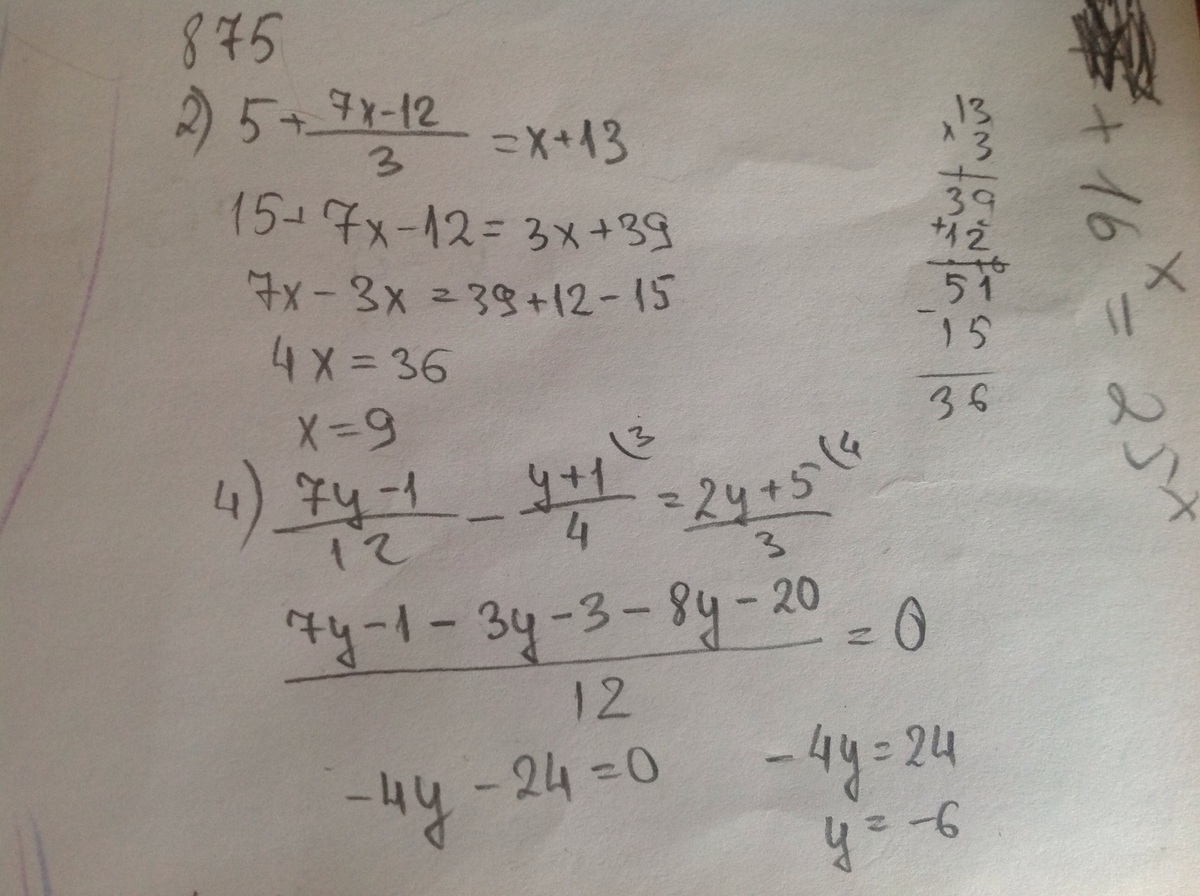 875
2) 5 + (7x-12)/3 = x+13
15+ 7x-12 = 3x+39
7x - 3x = 39+12-15
4x = 36
x = 9
4) (7y-1)/12 - (y+1)/4 (3 = (2y+5)/3 (4
(7y-1-3y-3-8y-20)/12 = 0
-4y - 24 = 0
-4y = 24
y = -6
13
x 3
39
+12
51
-15
36
+ 16x = 25x